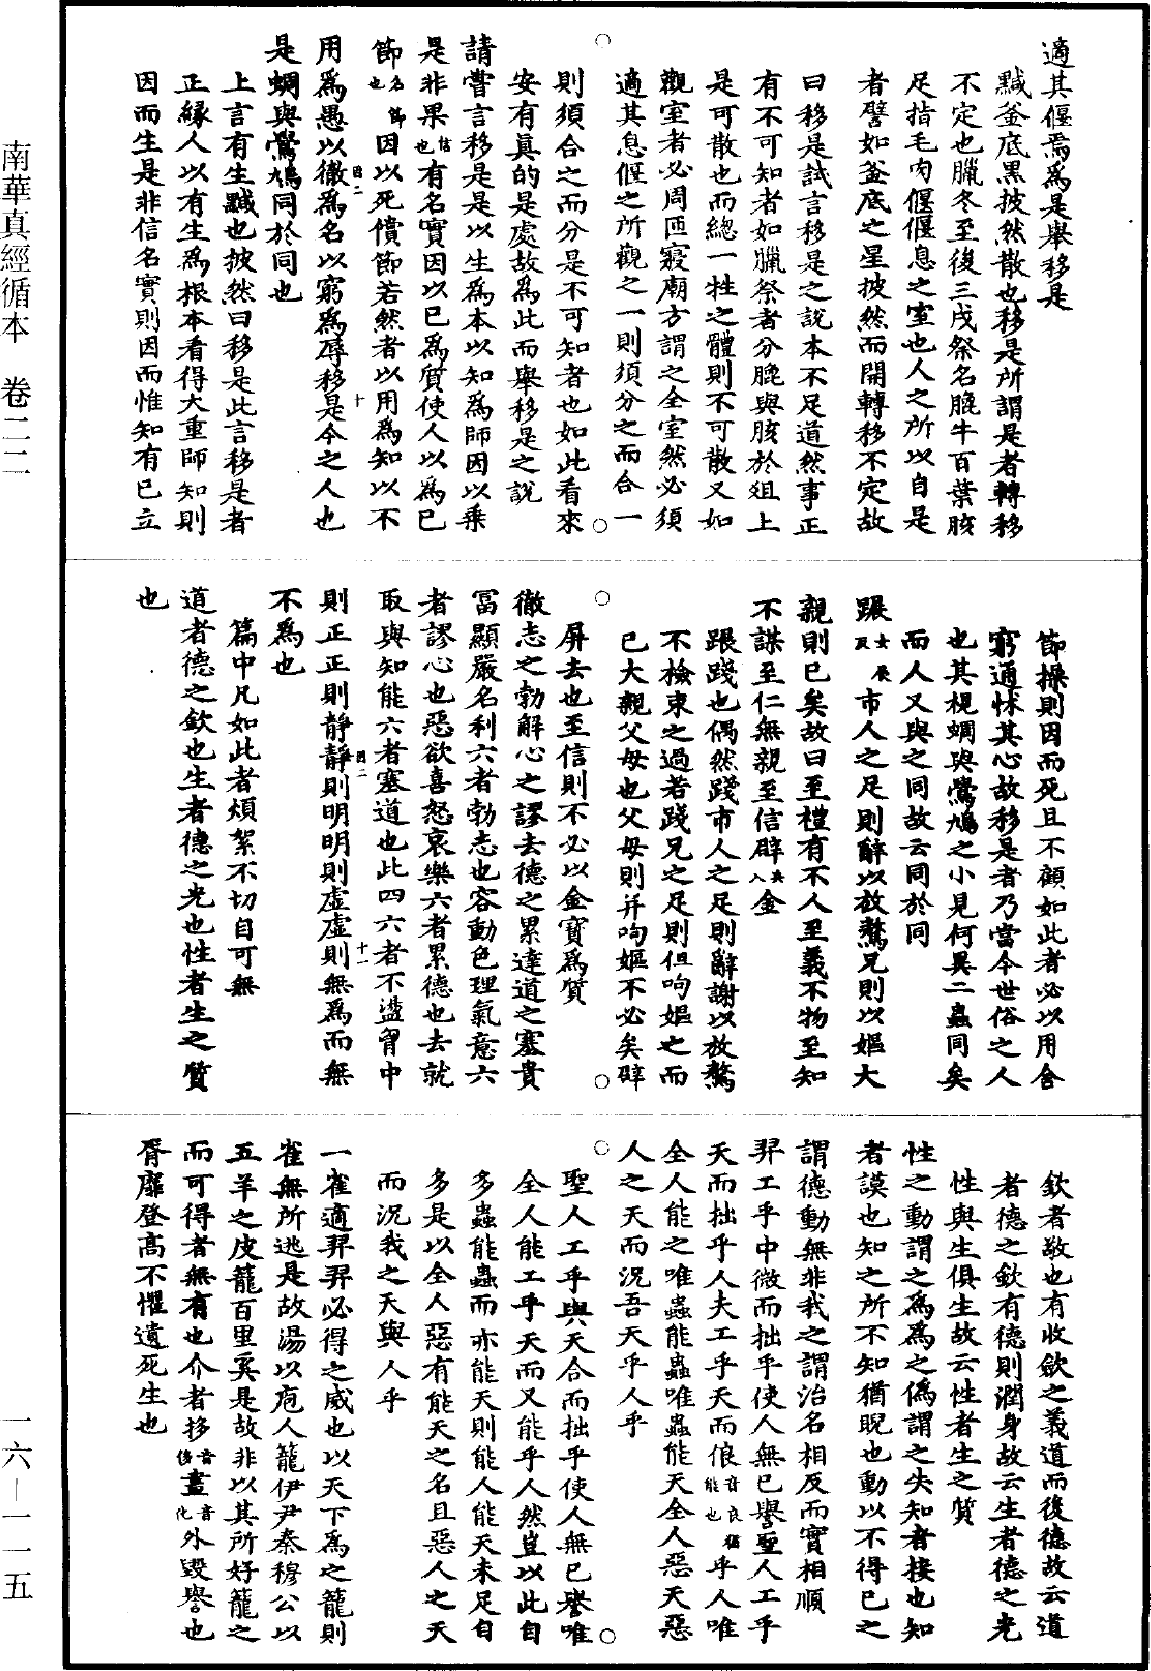 南華真經循本　卷二二
一六—一一五
適其偃焉為是舉移是
黬釜底黑披然散也移是所謂是者轉移
不定也臘冬至後三戌祭名膍牛百葉胲
足指毛肉偃偃息之室也人之所以自是
者譬如釜底之星披然而開轉移不定故
曰移是試言移是之說本不足道然事正
有不可知者如臘祭者分膍與胲於俎上
是可散也而總一牲之體則不可散又如
觀室者必周匝寢廟方謂之全室然必須
適其息偃之所觀之一則須分之而合一
則須合之而分是不可知者也如此看來
安有真的是處故為此而舉移是之說
請嘗言移是是以生為本以知為師因以乘
是非果信也有名實因以已為質使人以為已
節名節也因以死償節若然者以用為知以不
用為愚以徹為名以窮為辱移是今之人也
是蜩與鷽鳩同於同也
上言有生黬也披然曰移是此言移是者
正緣人以有生為根本看得大重師知則
因而生是非信名實則因而惟知有已立
節操則因而死且不顧如此者必以用舍
窮通怵其心故移是者乃當今世俗之人
也其視蜩與鷽鳩之小見何異二蟲同矣
而人又與之同故云同於同
蹍女展反市人之足則辭以放驁兄則以嫗大
親則已矣故曰至禮有不人至義不物至知
不謀至仁無親至信辟入金
蹍踐也偶然踐市人之足則辭謝以放驁
不檢束之過若踐兄之足則但呴嫗之而
已大親父母也父母則并呴嫗不必矣辟
屏去也至信則不必以金寶為質
徹志之勃解心之謬去德之累達道之塞貴
富顯嚴名利六者勃志也容動色理氣意六
者謬心也惡欲喜怒哀樂六者累德也去就
取與知能六者塞道也此四六者不盪胷中
則正正則靜靜則明明則虛虛則無為而無
不為也
篇中凡如此者煩絮不切自可無
道者德之欽也生者德之光也性者生之質
也
欽者敬也有收歛之義道而後德故云道
者德之欽有德則潤身故云生者德之光
性與生俱生故云性者生之質
性之動謂之為為之偽謂之失知者接也知
者謨也知之所不知猶睨也動以不得已之
謂德動無非我之謂治名相反而實相順
羿工乎中微而拙乎使人無已譽聖人工乎
天而拙乎人夫工乎天而俍音良猶能也乎人唯
全人能之唯蟲能蟲唯蟲能天全人惡天惡
人之天而況吾天乎人乎
聖人工乎與天合而拙乎使人無已譽唯
全人能工乎天而又能乎人然豈以此自
多蟲能蟲而亦能天則能人能天未足自
多是以全人惡有能天之名且惡人之天
而況我之天與人乎
一雀適羿羿必得之威也以天下為之籠則
雀無所逃是故湯以庖人籠伊尹秦穆公以
五羊之皮籠百里奚是故非以其所好籠之
而可得者無有也介者拸音侈畫音化外毀譽也
胥靡登高不懼遺死生也